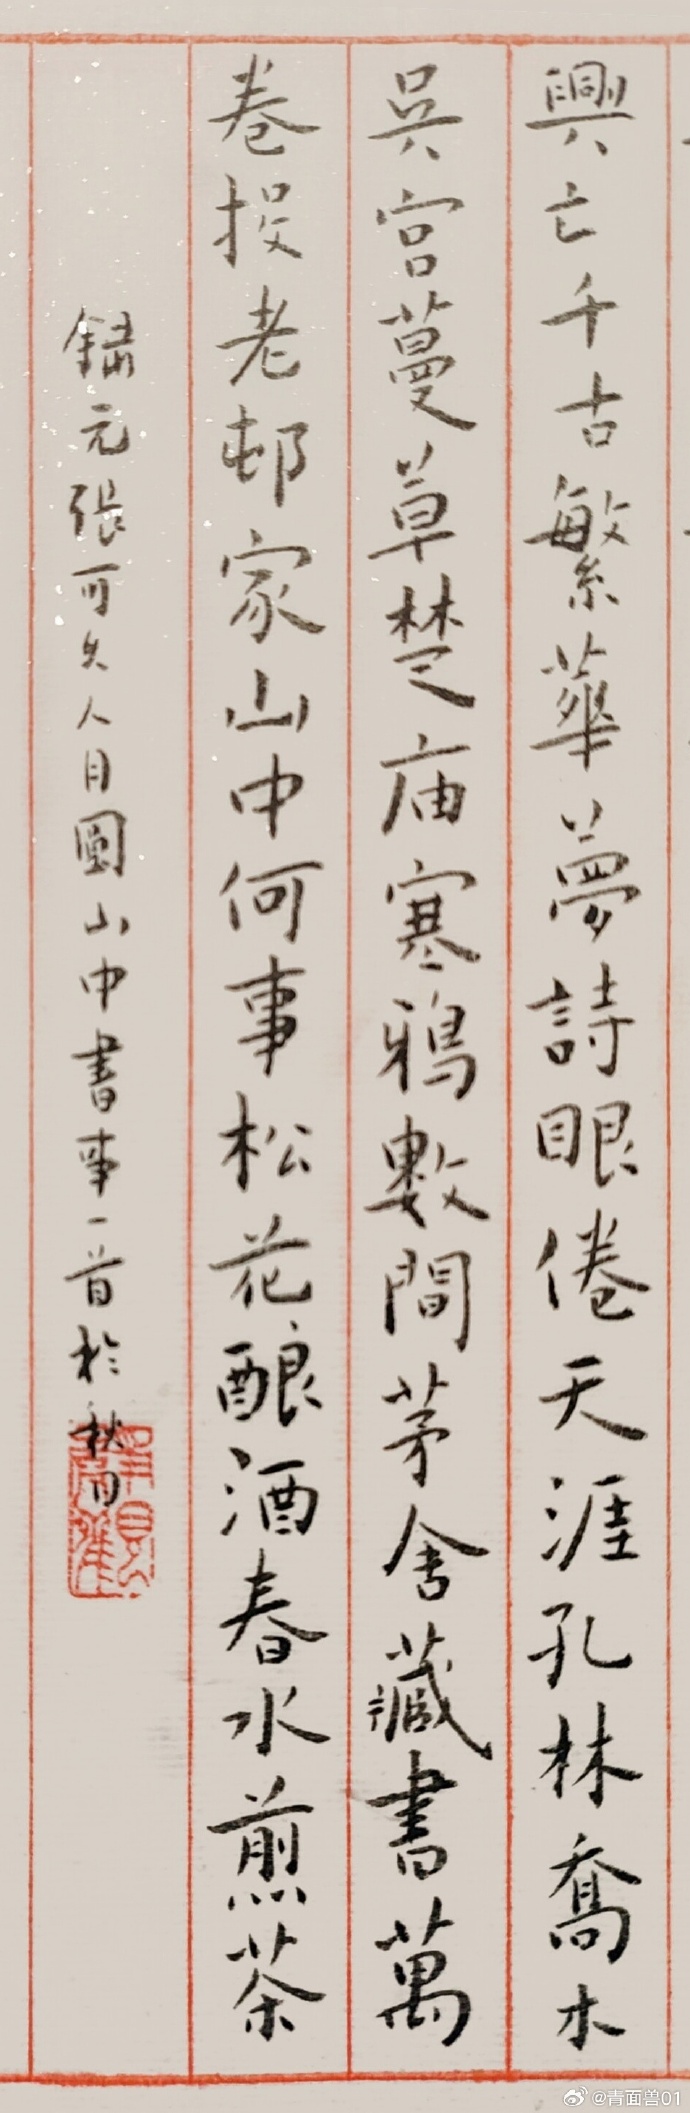 興亡千古繁華夢詩眼倦天涯孔林喬木
吳宮蔓草楚庙寒鴉數間茅舍藏書萬
卷投老邨家山中何事松花酿酒春水煎茶
錄元張可久人月圓山中書事一首於秋日
@青面兽01